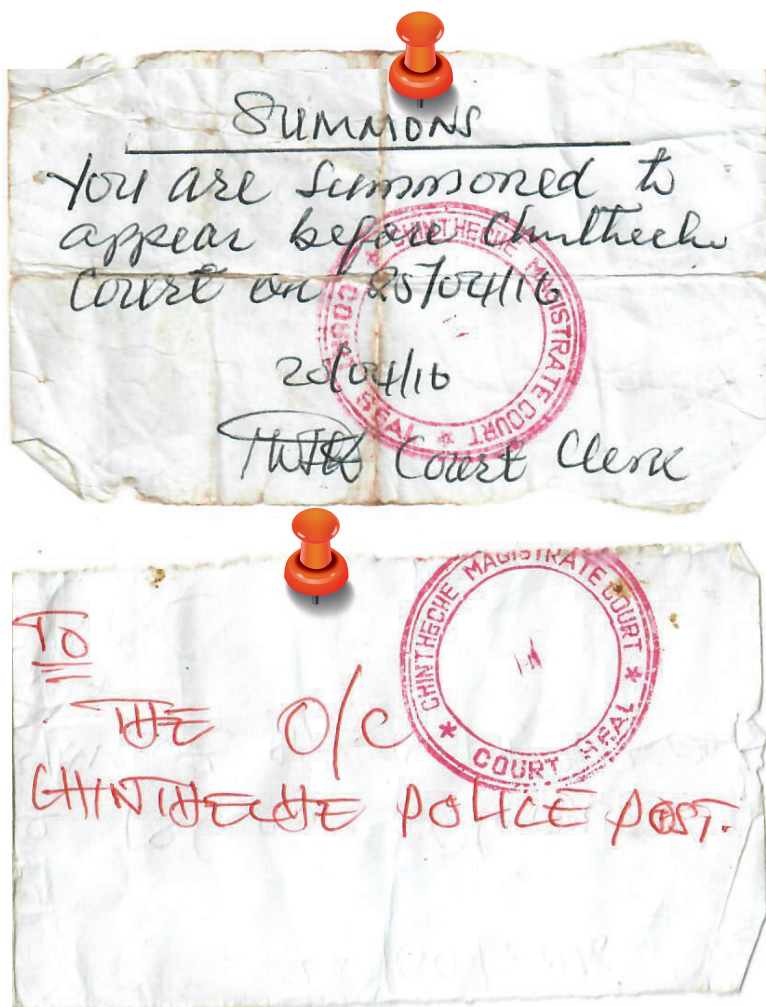 SUMMONS
You are summoned to
appear before Chintheche
Court on 25/04/16
20/04/16
Court Clerk
CHINTHECHE MAGISTRATE COURT * COURT SEAL *
To
THE O/C
CHINTHECHE POLICE POST.
CHINTHECHE MAGISTRATE COURT * COURT SEAL *